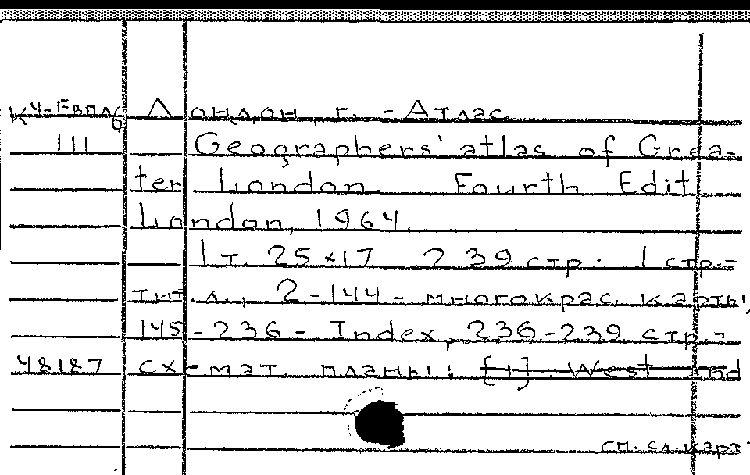 К4-Евпл6 Лондон, г. - Атлас
III Geographers' atlas of Grea-
ter London Fourth Edit.
London, 1964.
1 т. 25×17 239 стр. 1 стр.-
тит.л., 2-144 - многокрас. карты,
145-236 - Index, 236-239 стр.-
48187 схемат. планы: [1] West End
см. сл. карт